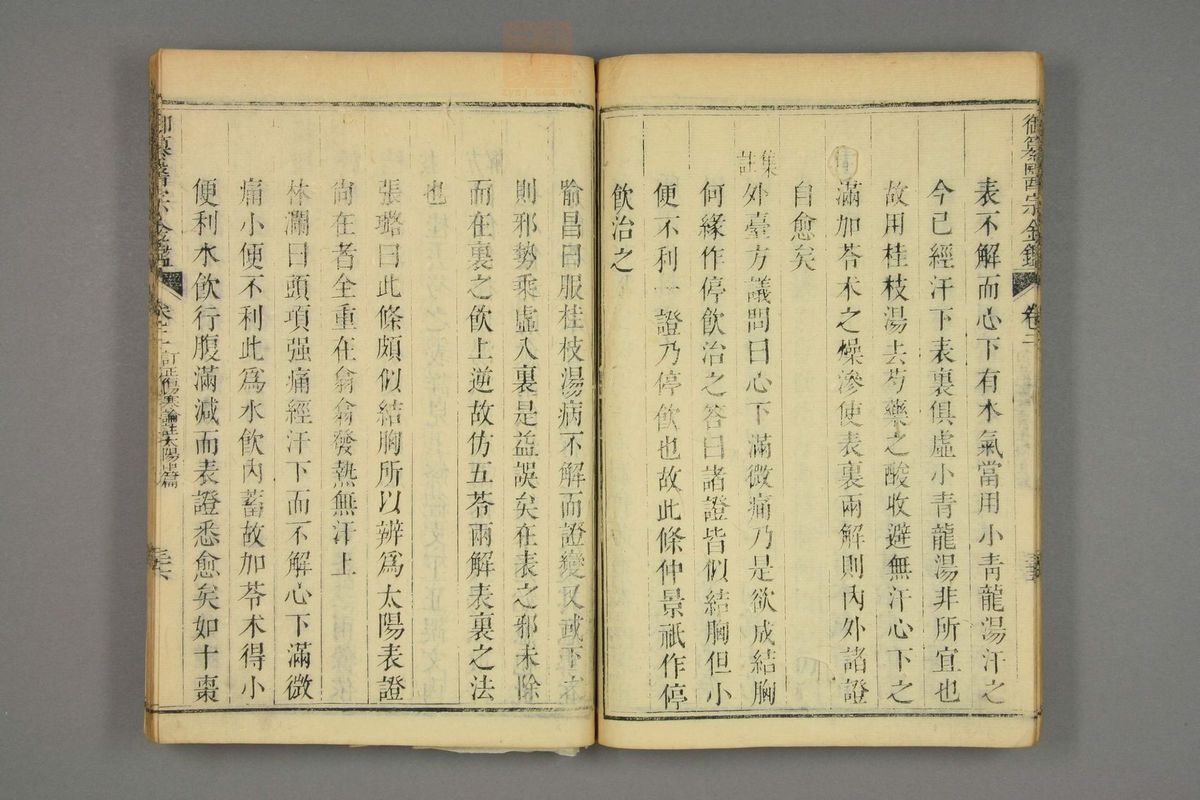 御纂醫宗金鑑 卷二
表不解而心下有水氣當用小青龍湯汗之
今已經汗下表裏俱虛小青龍湯非所宜也
故用桂枝湯去芍藥之酸收避無汗心下之
滿加苓朮之燥滲使表裏兩解則內外諸證
自愈矣
集註
外臺方議問曰心下滿微痛乃是欲成結胸
何緣作停飲治之答曰諸證皆似結胸但小
便不利一證乃停飲也故此條仲景祇作停
飲治之
喻昌曰服桂枝湯病不解而證變又或下之
則邪勢乘虛入裏是益誤矣在表之邪未除
而在裏之飲上逆故仿五苓兩解表裏之法
也
張璐曰此條頗似結胸所以辨爲太陽表證
尙在者全重在翕翕發熱無汗上
林瀾曰頭項强痛經汗下而不解心下滿微
痛小便不利此爲水飲內蓄故加苓朮得小
便利水飲行腹滿減而表證悉愈矣如十棗
御纂醫宗金鑑 卷二 訂正傷寒論註太陽中篇